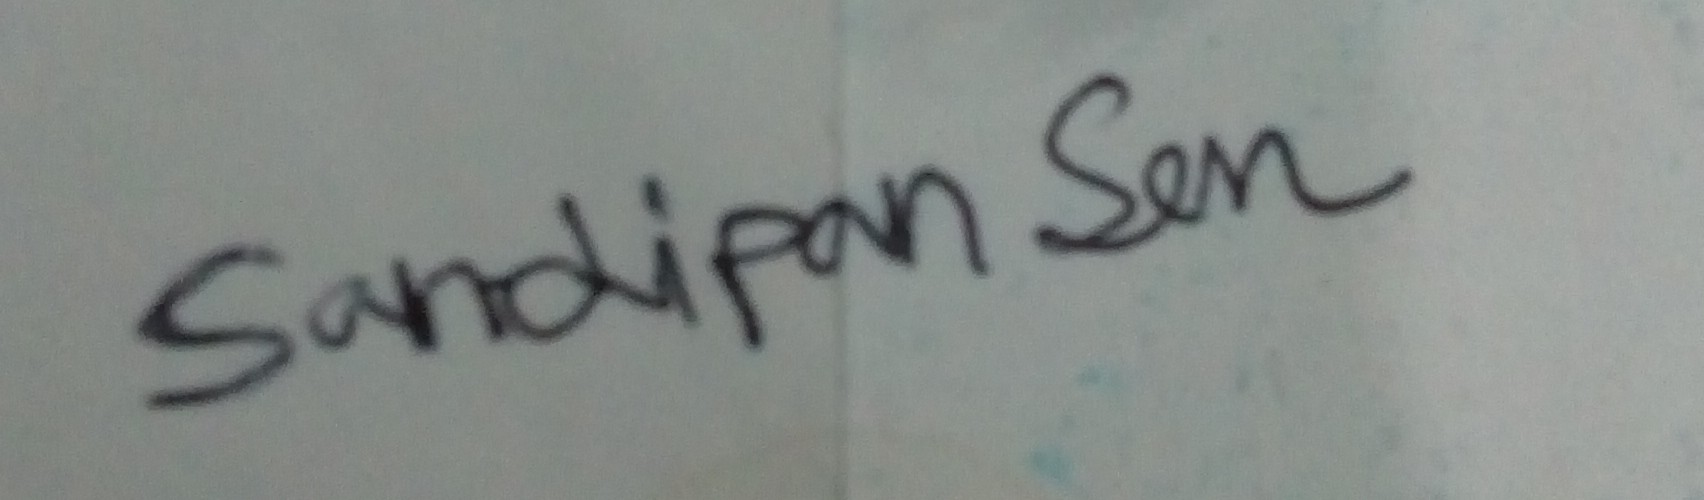 Sandipan Sen